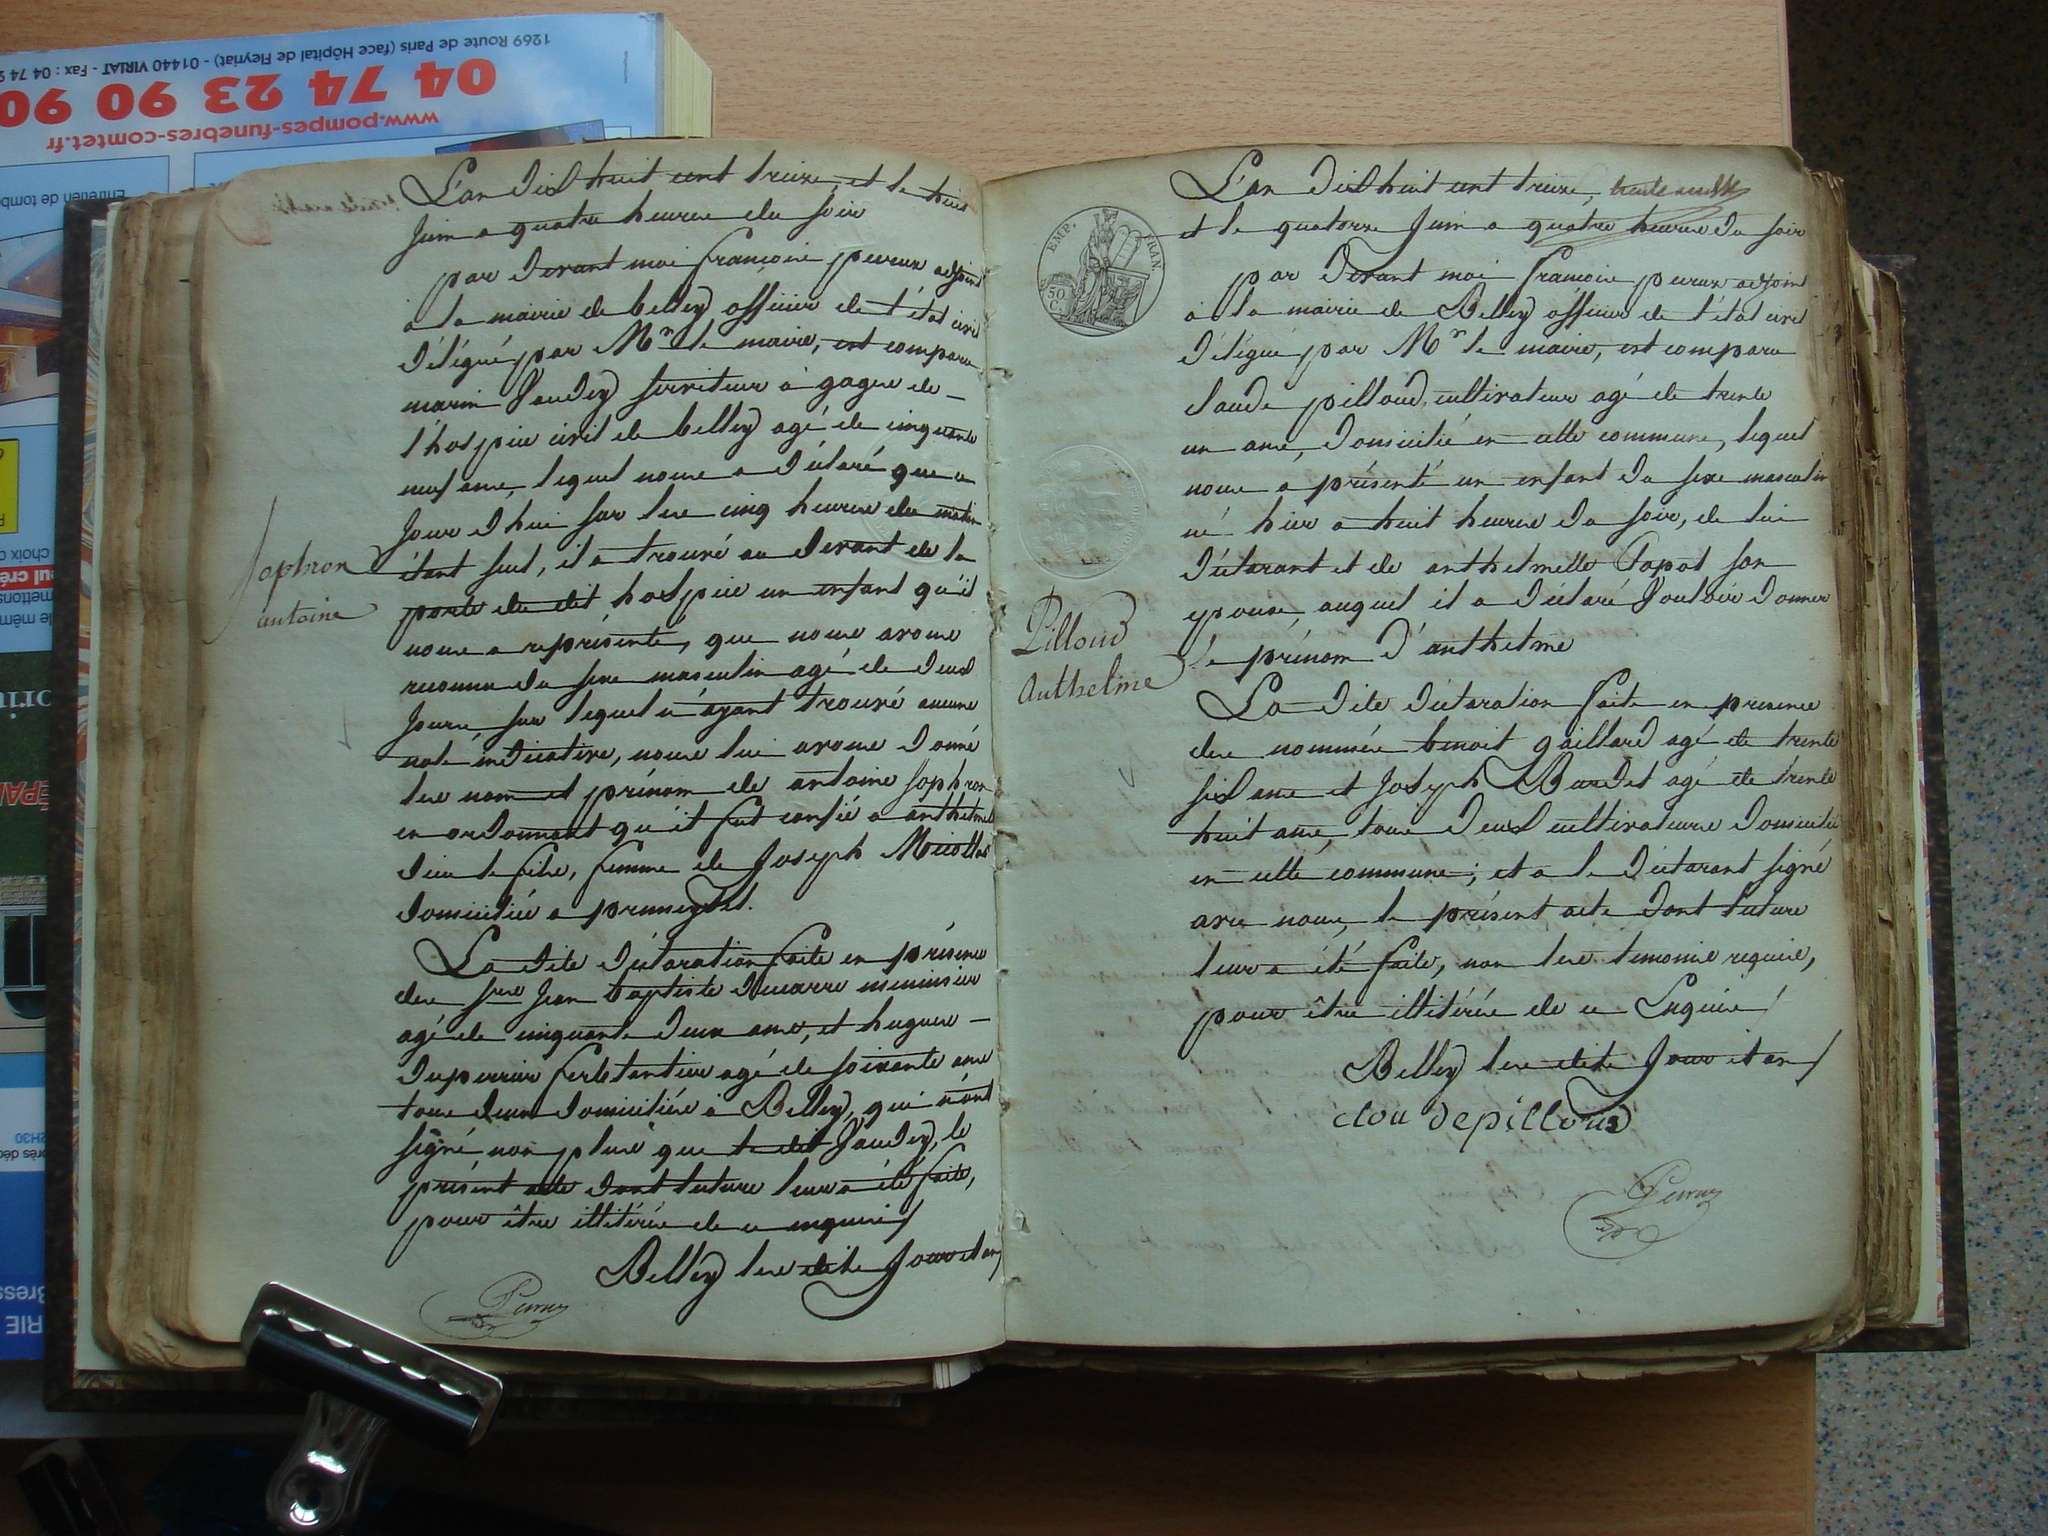 1269 Route de Paris (face Hôpital de Fleyriat) - 01440 VIRIAT - Fax : 04 74 2
04 74 23 90 90
www.pompes-funebres-comtet.fr
Entretien de tombe
L'an dix huit cent treize, et le huit
Juin a quatre heures du soir
par devant moi françois peureux adjoint
a la mairie de belley officier de l'état civil
délégué par Mr le maire, est comparu
marin Vaudey serviteur a gages de
l'hospice civil de belley agé de cinquante
neuf ans, lequel nous a déclaré que ce
jour d'hui sur les cinq heures du matin
étant seul, il a trouvé au devant de la
porte du dit hospice un enfant qu'il
nous a représenté, que nous avons
reconnu du sexe masculin agé de deux
jours, sur lequel n'ayant trouvé aucune
note indicative, nous lui avons donné
les nom et prénom de antoine Sophron
en ordonnant qu'il fut confié a anthelme
femme de Joseph
domiciliée a
Sophron
antoine
La dite déclaration faite en présence
des srs Jean baptiste menuisier
agé de cinquante deux ans, et hugues
duperrier ferblantier agé de soixante ans
tous deux domiciliés a Belley, qui n'ont
signé non plus que le dit Vaudey, le
présent acte dont lecture leur a été faite,
pour être illitérés de ce enquis /
Belley les dits Jour et an /
L'an dix huit cent treize,
et le quatorze Juin a quatre heures du soir
EMP. FRAN.
50 C.
par devant moi françois peureux adjoint
a la mairie de Belley officier de l'état civil
délégué par Mr le maire, est comparu
claude pilloud, cultivateur agé de trente
un ans, domicilié en cette commune, lequel
nous a présenté un enfant du sexe masculin
né hier a huit heures du soir, de lui
déclarant et de anthelmette Papot son
epouse, auquel il a déclaré vouloir donner
le prénom d'anthelme
Pilloud
Anthelme
La dite déclaration faite en presence
des nommés benoit gaillard agé de trente
six ans et Joseph Burdet agé de trente
huit ans, tous deux cultivateurs domiciliés
en cette commune; et a le déclarant signé
avec nous, le présent acte dont lecture
leur a été faite, non les temoins requis,
pour être illitérés de ce Enquis /
Belley les dits Jour et an /
clou depilloud